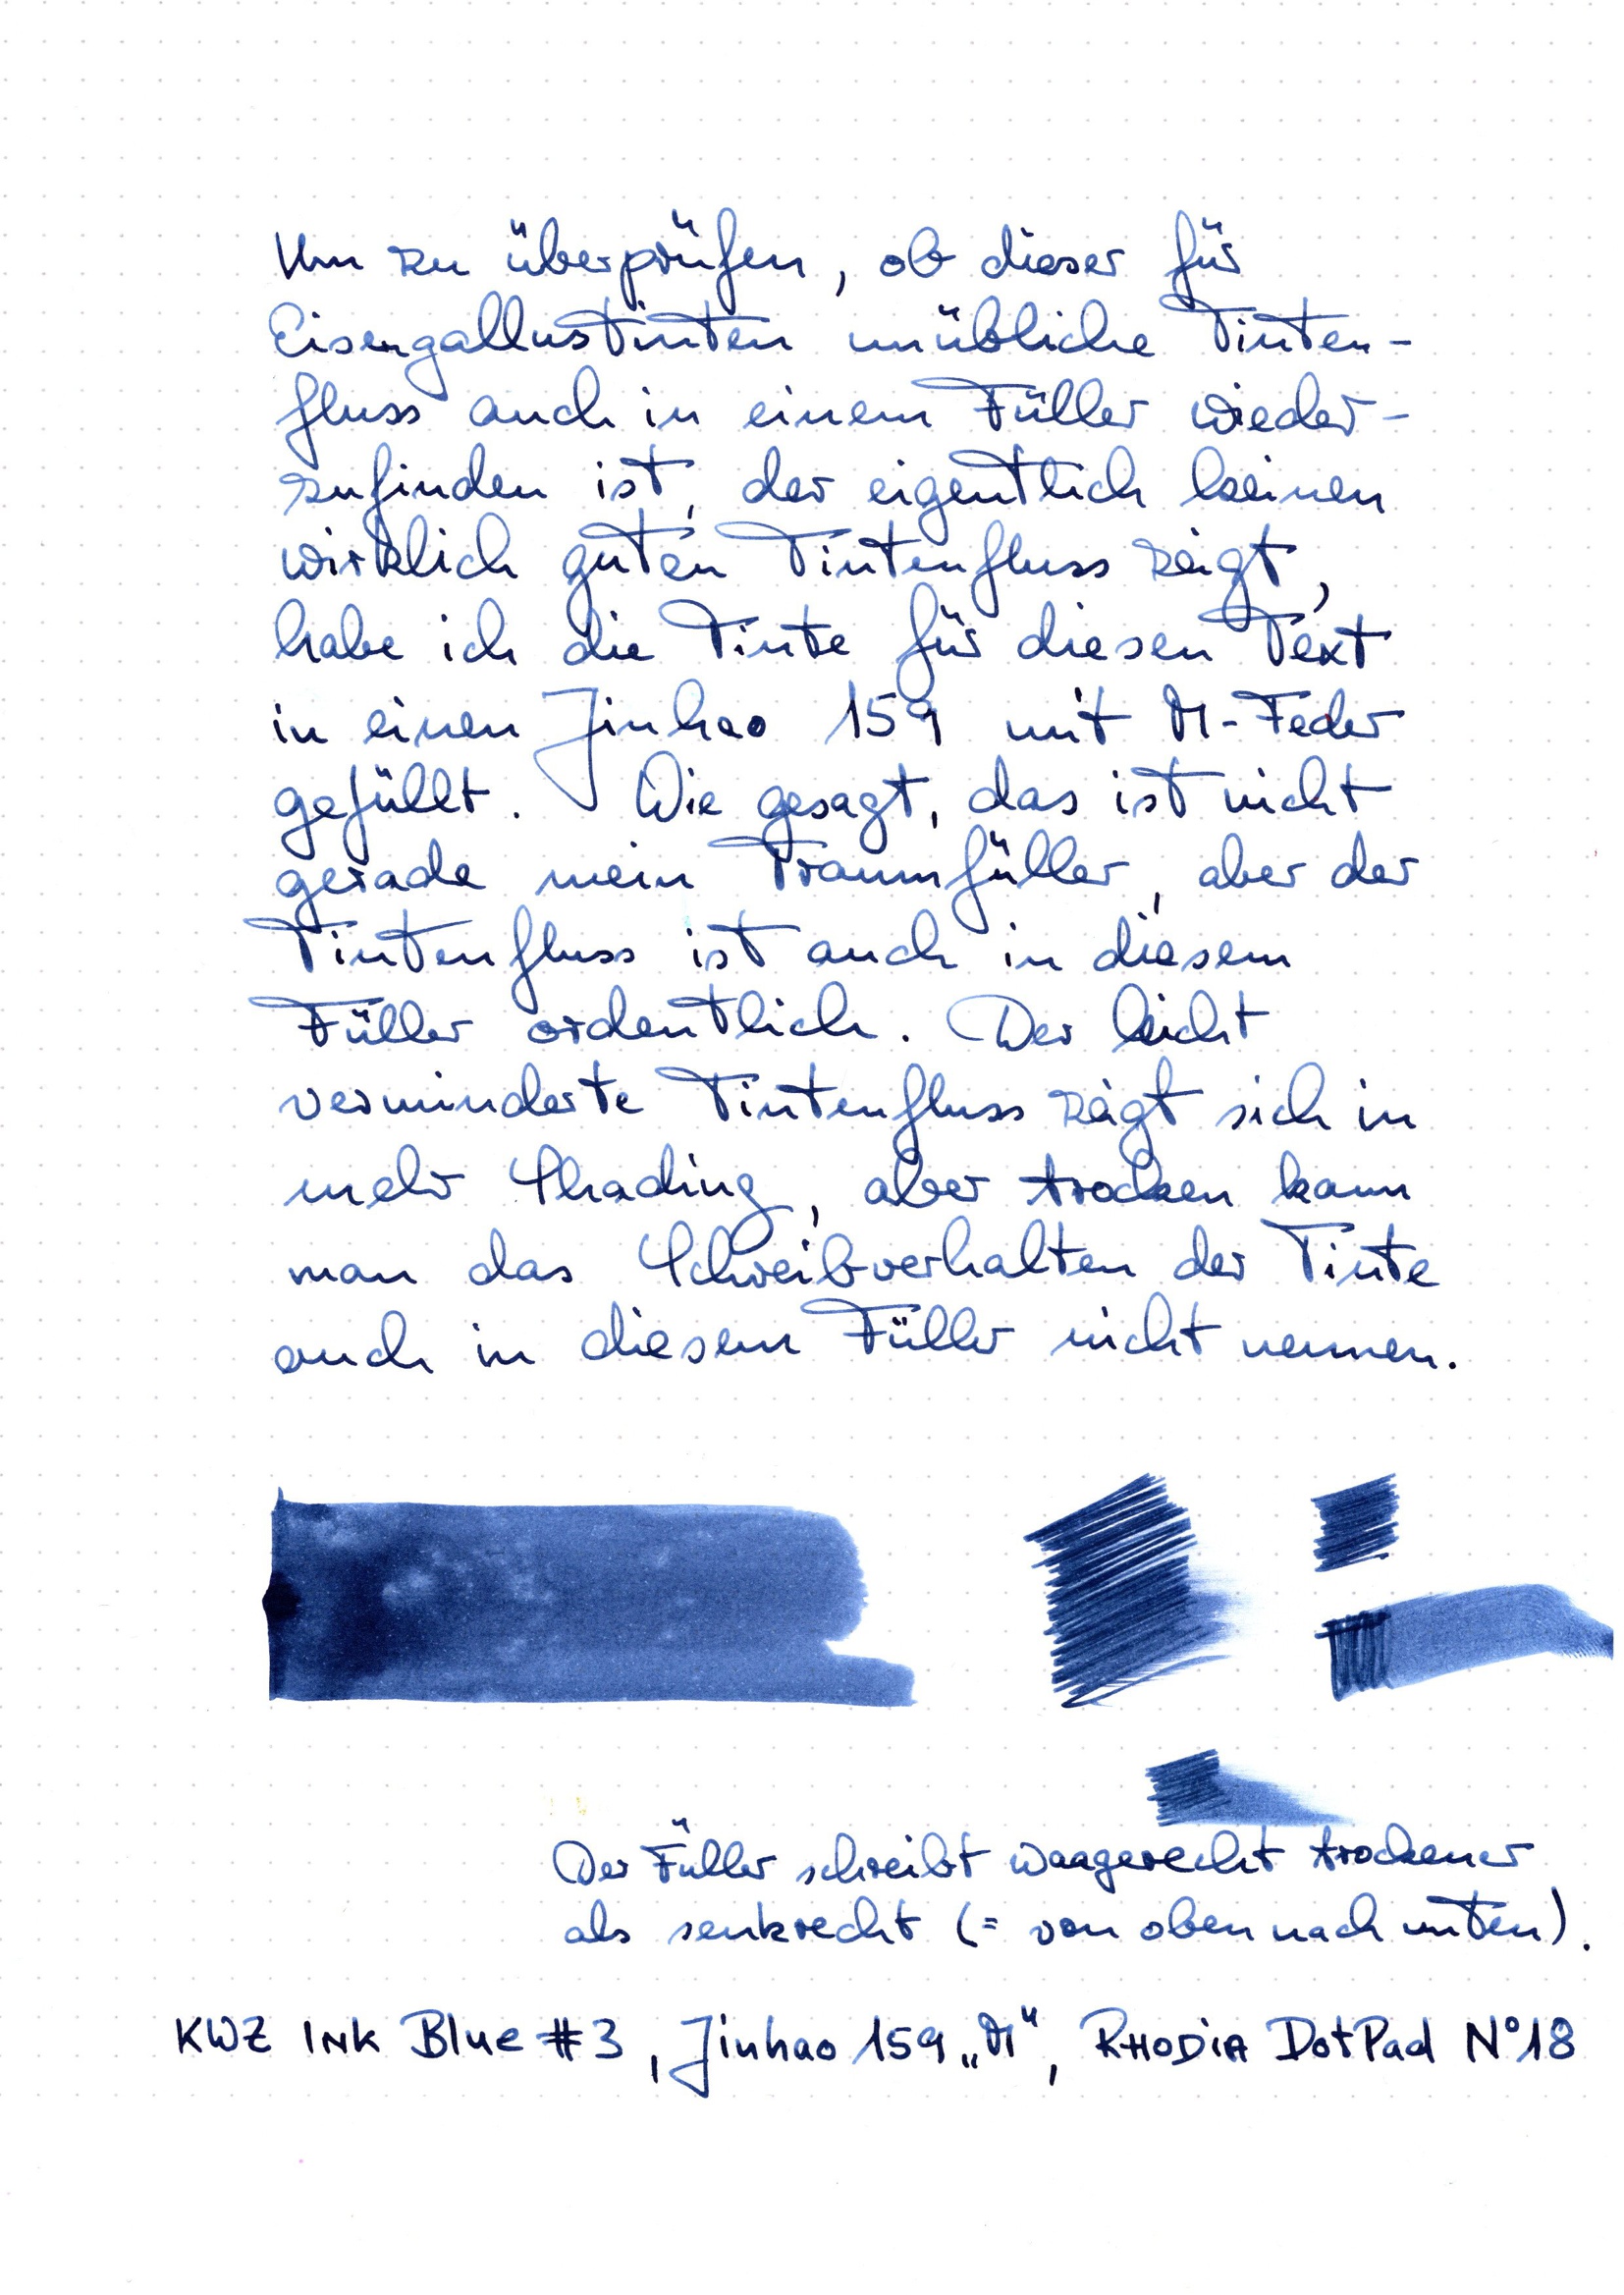 Um zu überprüfen, ob dieser für
Eisengallustinten unübliche Tinten-
fluss auch in einem Füller wieder-
zufinden ist, der eigentlich keinen
wirklich guten Tintenfluss zeigt,
habe ich die Tinte für diesen Text
in einen Jinhao 159 mit M-Feder
gefüllt. Wie gesagt, das ist nicht
gerade mein Traumfüller, aber der
Tintenfluss ist auch in diesem
Füller ordentlich. Der leicht
verminderte Tintenfluss zeigt sich in
mehr Shading, aber trocken kann
man das Schreibverhalten der Tinte
auch in diesem Füller nicht nennen.
Der Füller schreibt waagerecht trockener
als senkrecht (= von oben nach unten).
KWZ INK Blue #3, Jinhao 159 „M", RHODIA DotPad N°18